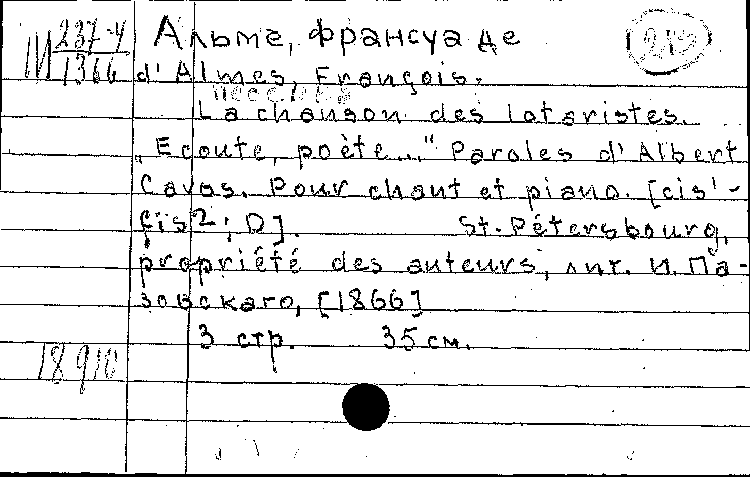 М 237-4/1366 Альме, Франсуа де
d'Almes, François.
La chanson des lotoristes.
„Ecoute, poète..." Paroles d'Albert
Cavos. Pour chant et piano. [cis'-
fis2; D]. St. Pétersbourg,
propriété des auteurs, лит. И. Па-
зовскаго, [1866]
3 стр. 35 см.
18910